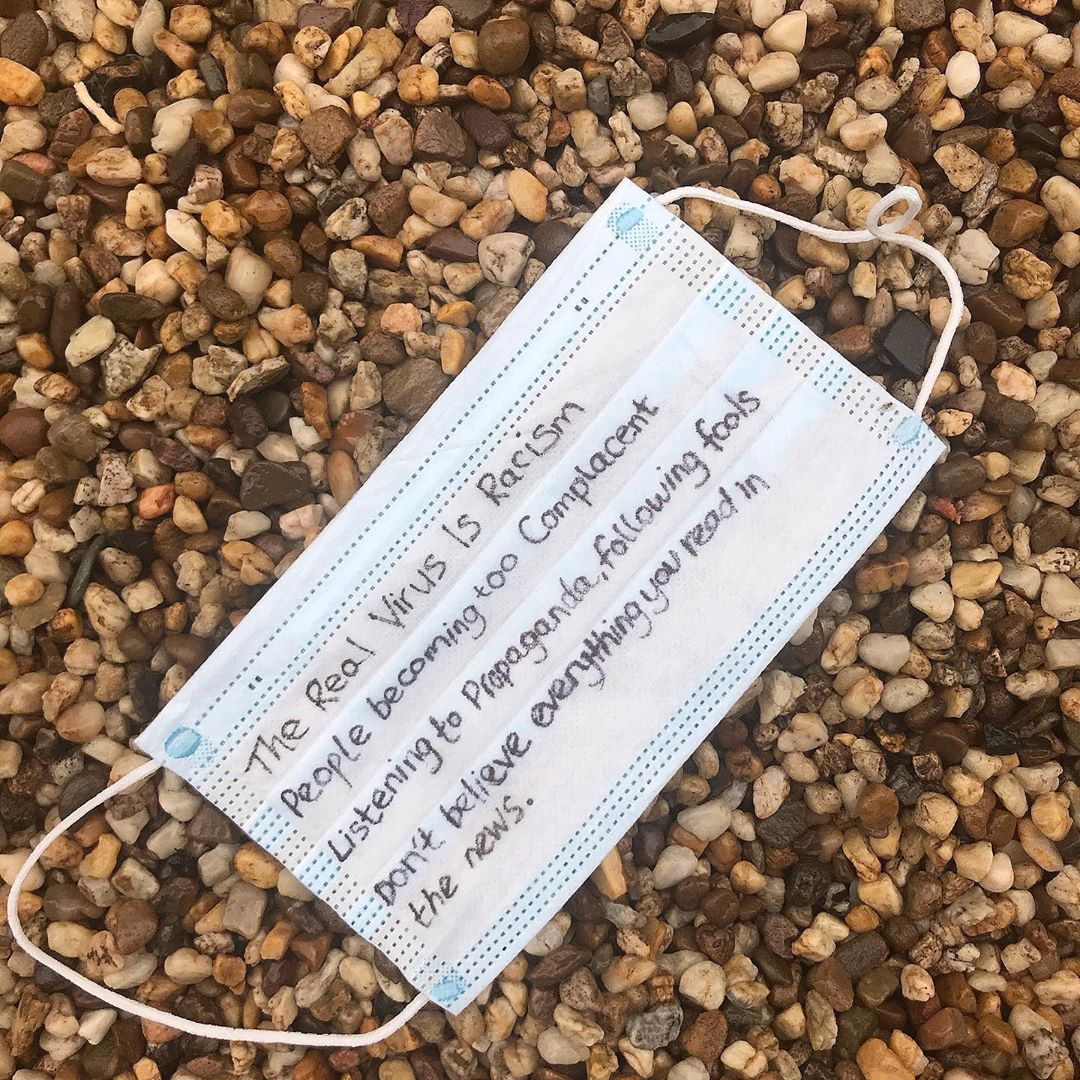 The Real Virus Is Racism
People becoming too Complacent
Listening to Propaganda, following fools
Don't believe everything you read in
the news.